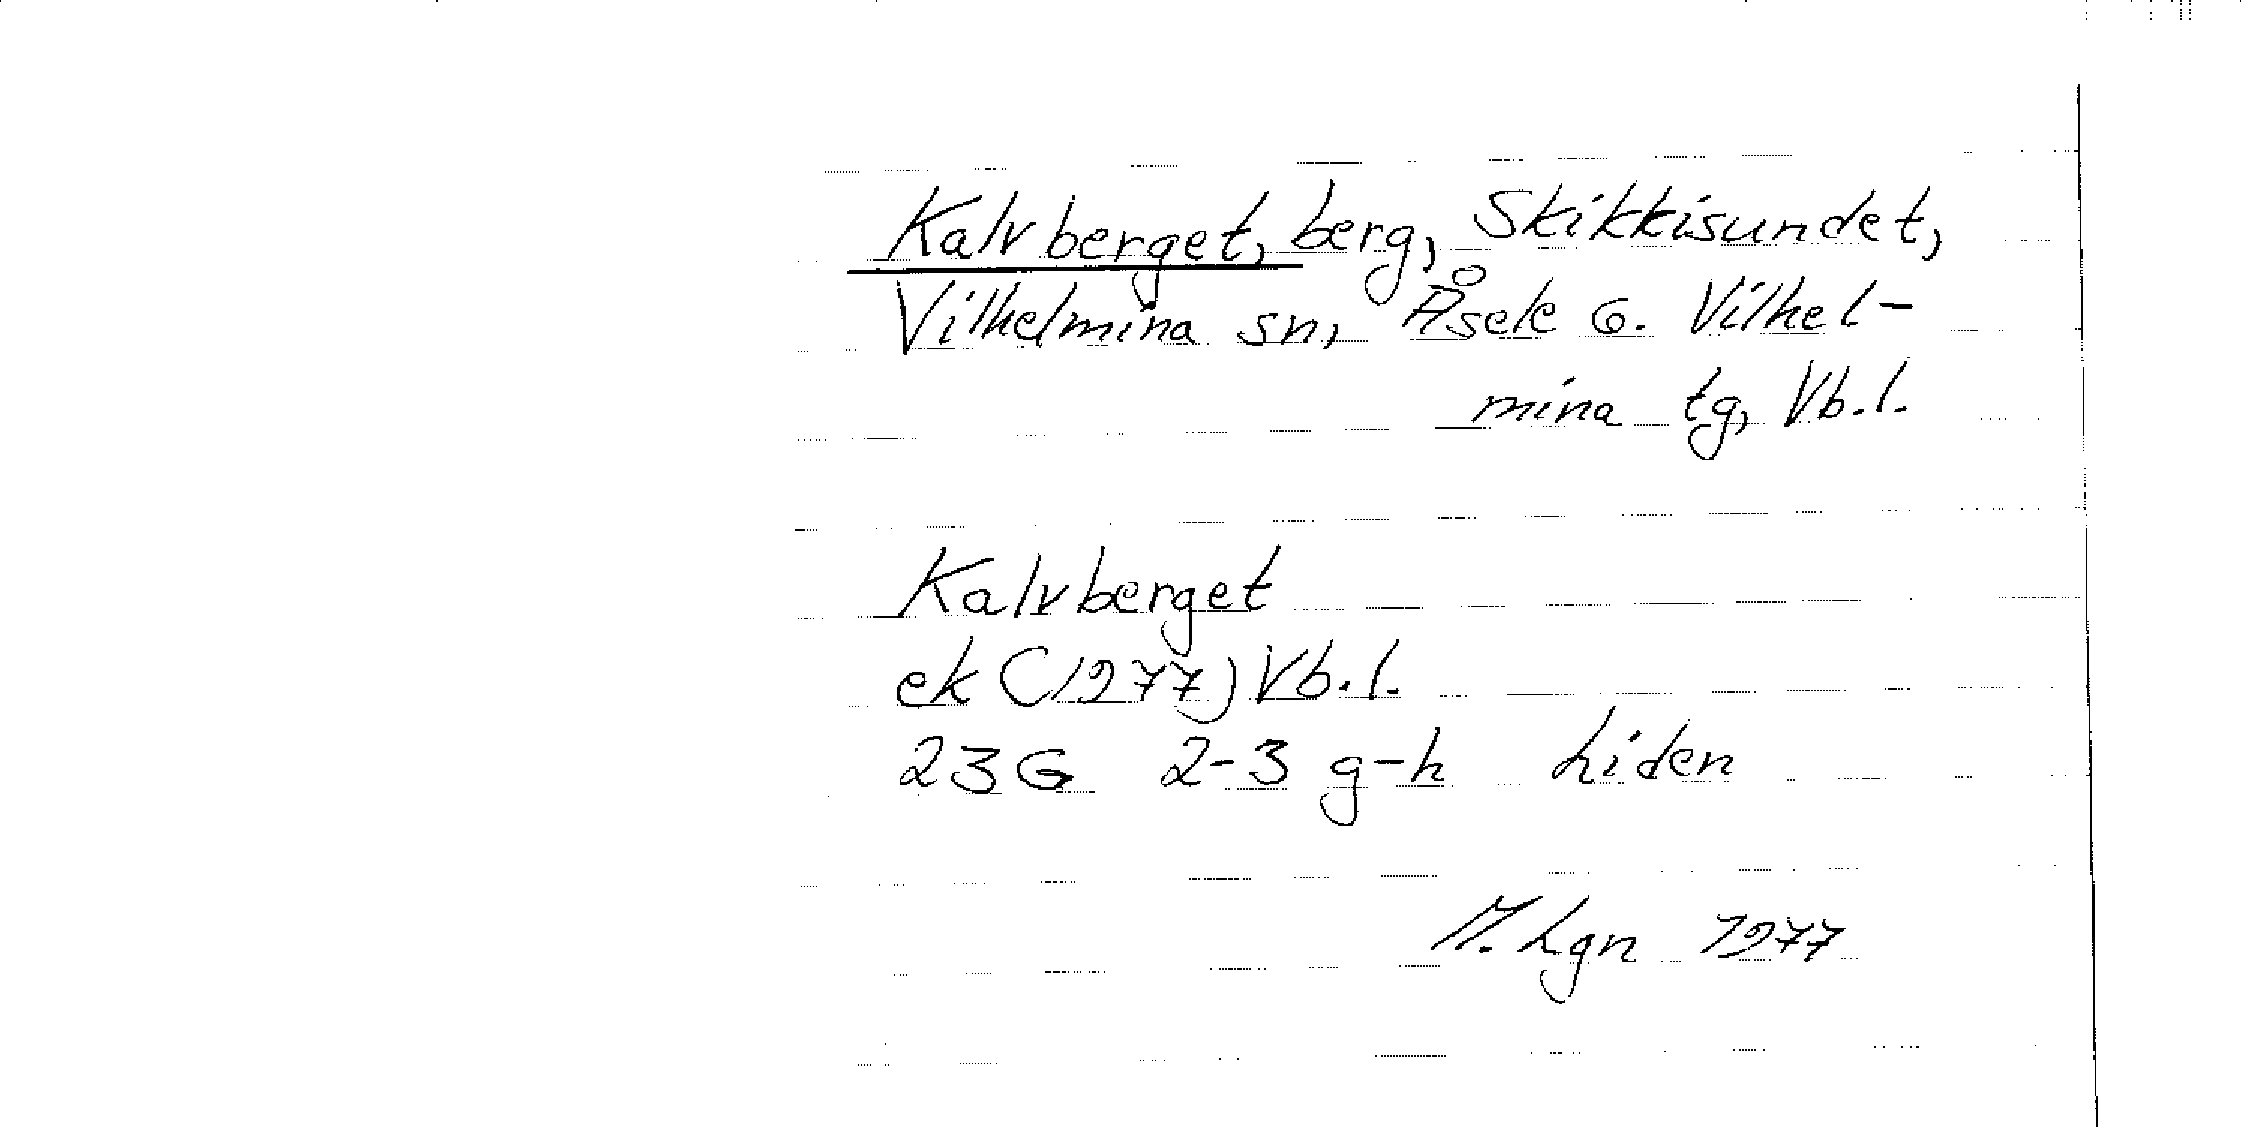 Kalvberget, berg, Skikkisundet,
Vilhelmina sn, Åsele o. Vilhel-
mina tg, Vb.l.
Kalvberget
ek (1977) Vb.l.
23G 2-3 g-h Liden
M. Lgn 1977